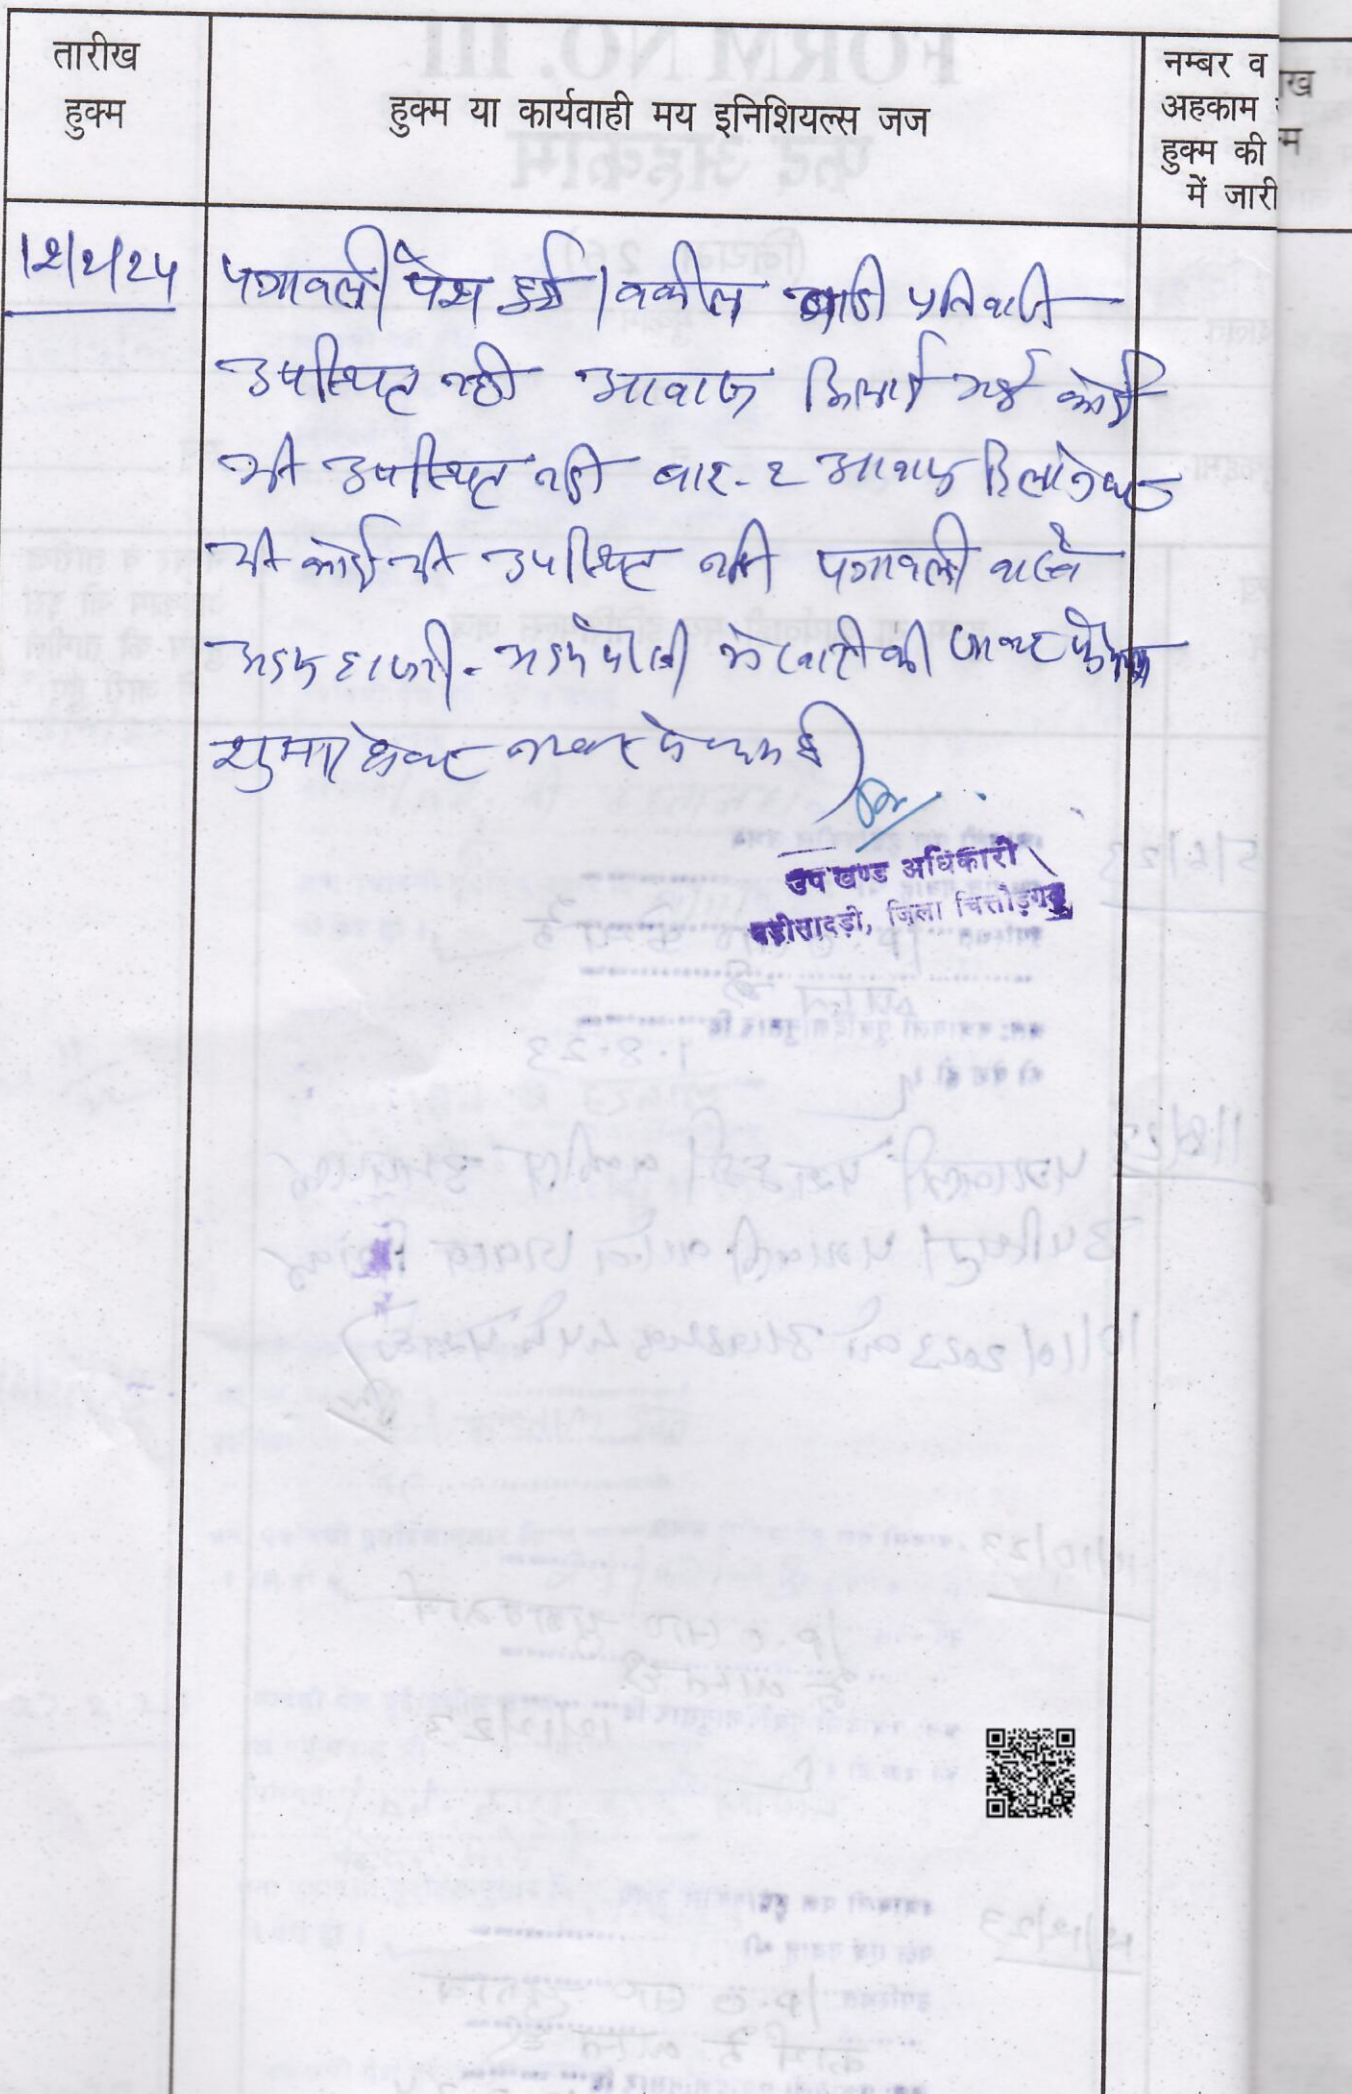 तारीख
हुक्म
हुक्म या कार्यवाही मय इनिशियल्स जज
नम्बर व
अहकाम
हुक्म की
में जारी
पत्रावली पेश हुई। वकील वादी प्रतिवादी
उपस्थित नही आवाज दिलाई गई कोई
भी उपस्थित नही बार-2 आवाज दिलाने पर
भी कोई भी उपस्थित नही पत्रावली वास्ते
अदम हाजरी - अदम पैरवी में खारीज की जाकर फैसल
शुमार होकर नम्बर से कम हो
उप खण्ड अधिकारी
बड़ीसादड़ी, जिला चित्तौड़गढ़